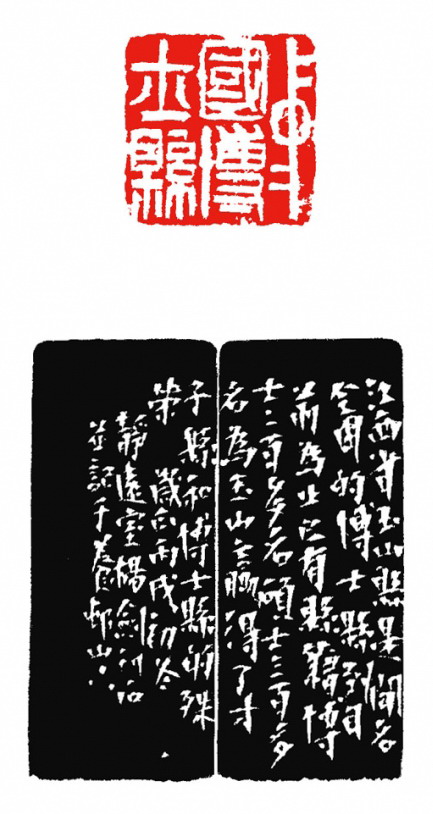 中
國博
士縣
江西省玉山縣是聞名
全國的博士縣到目
前為止已有縣籍博
士二百多名碩士三百多
名為玉山贏得了才
子縣和博士縣的殊
榮 歲在丙戌初冬
靜遠室楊劍刊石
並記于養山